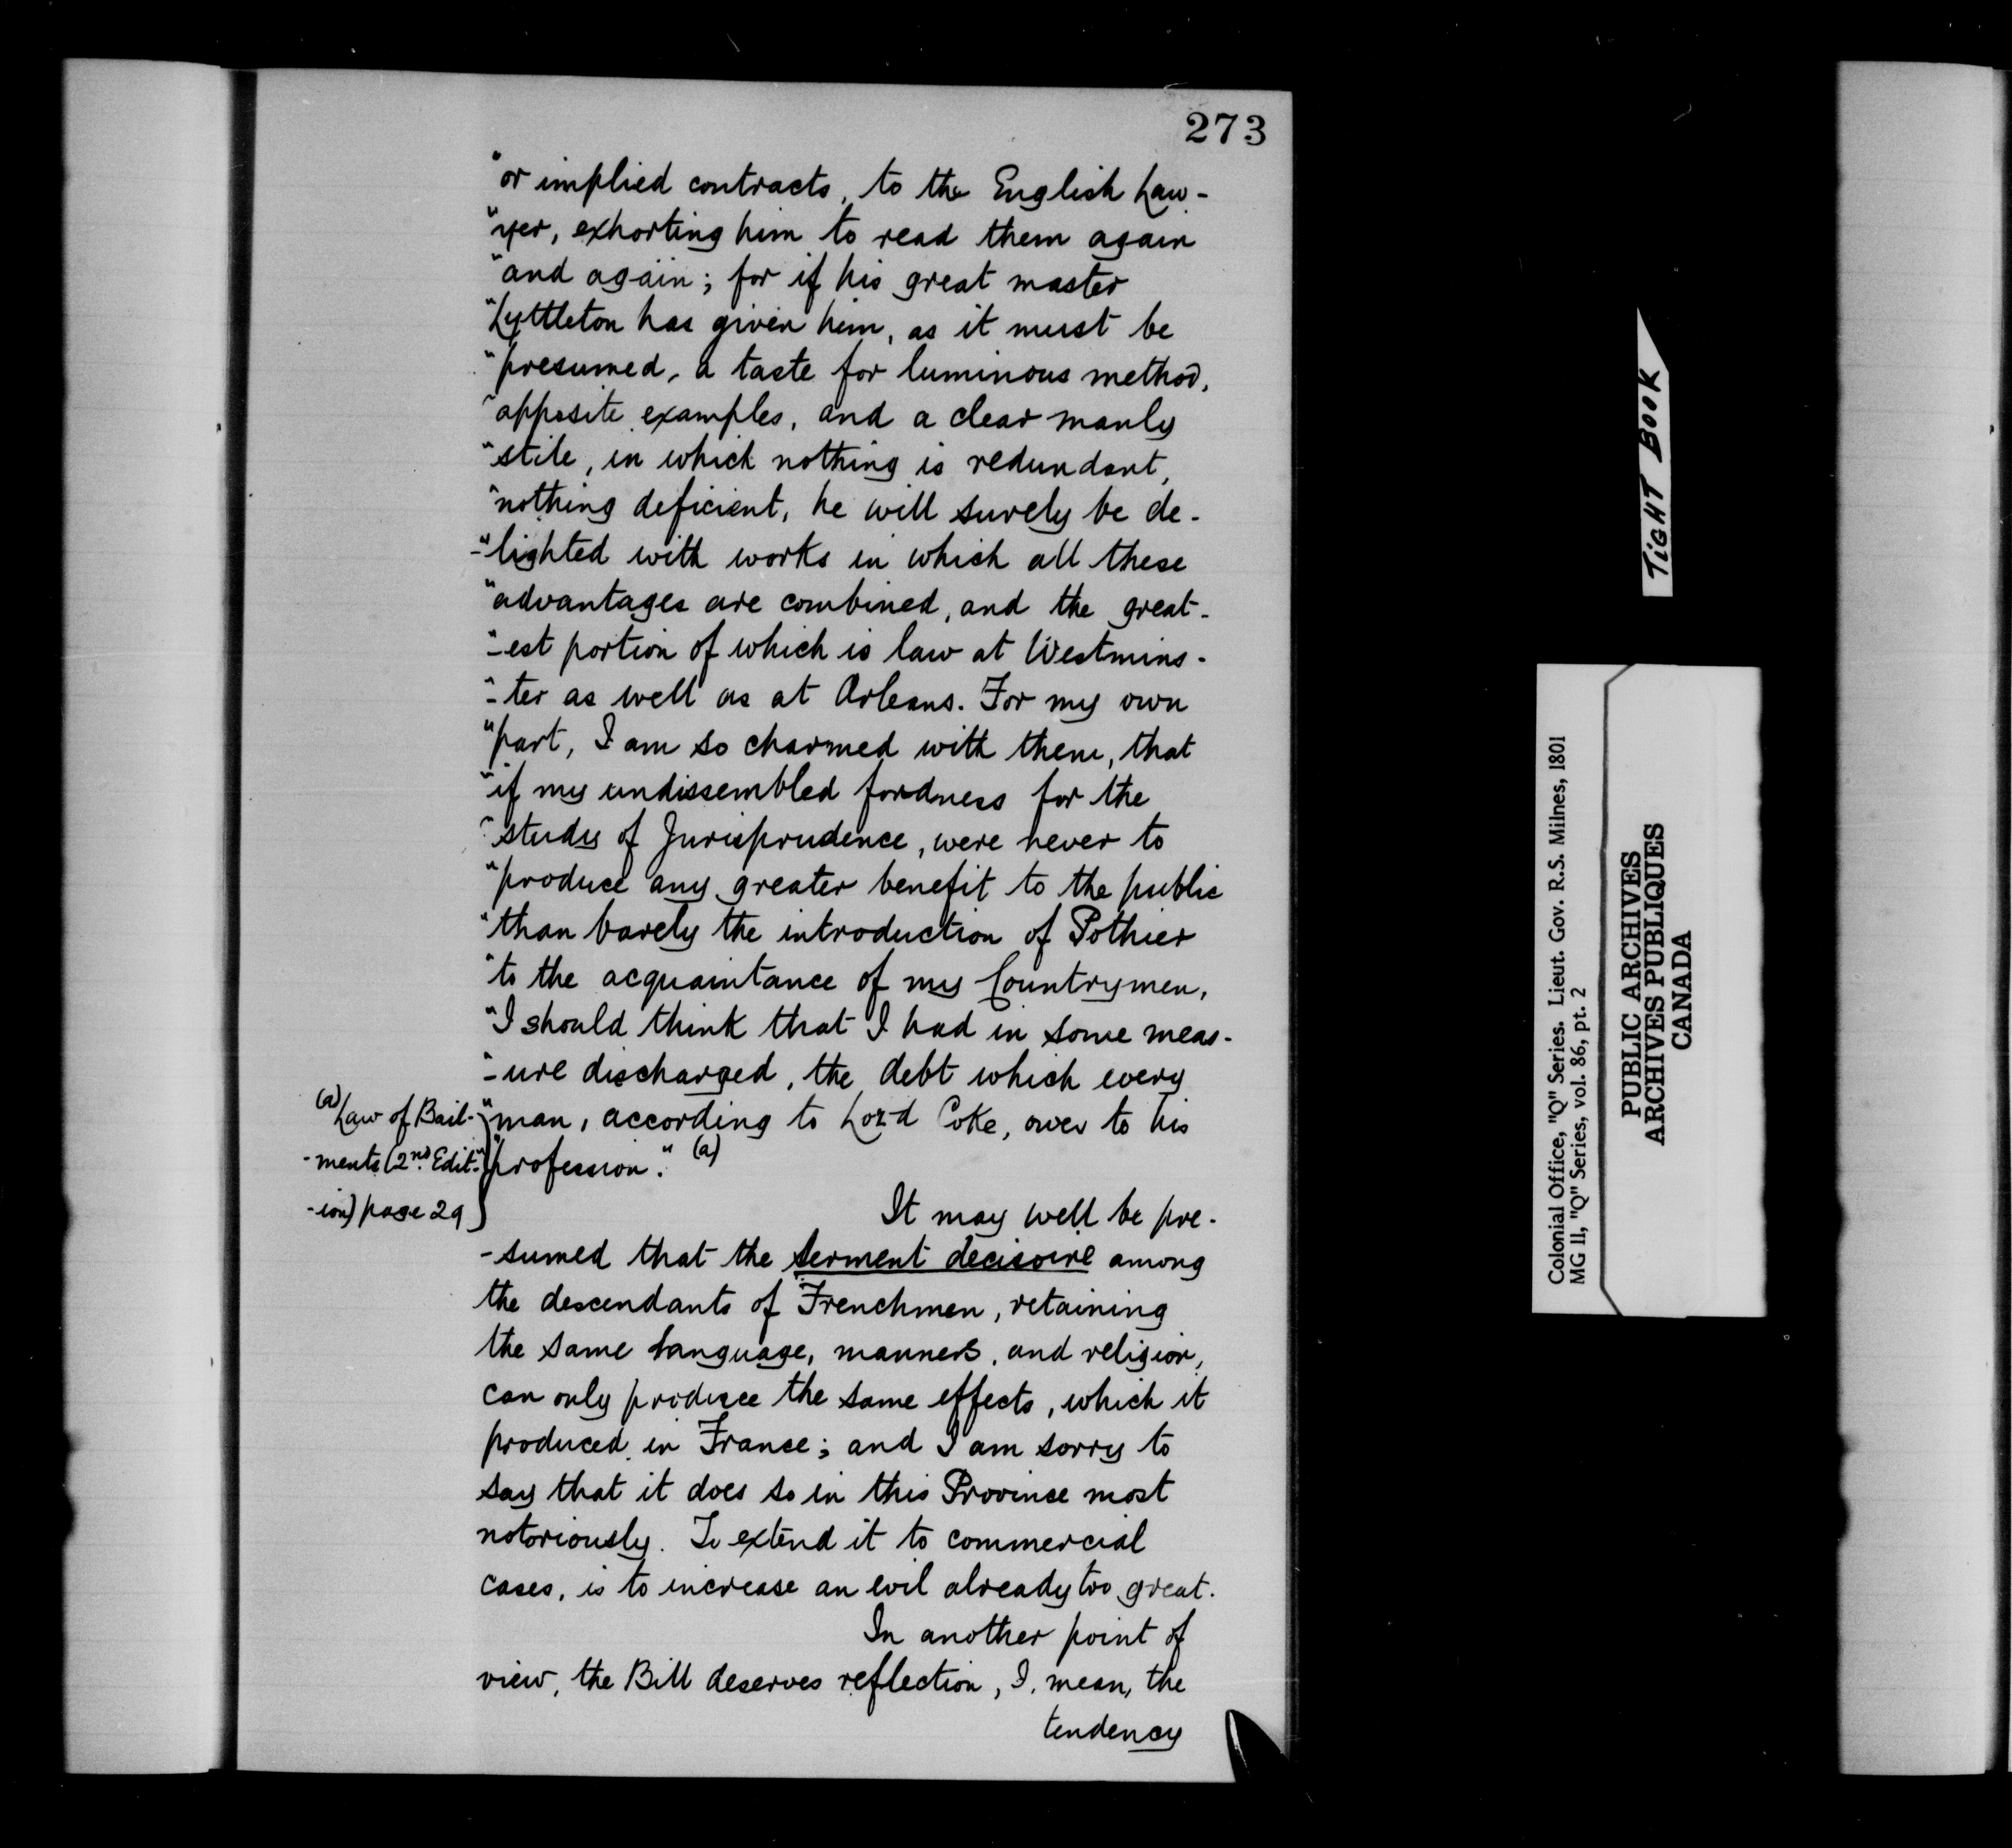 273
"or implied contracts, to the English Law-
"yer, exhorting him to read them again
"and again; for if his great master
"Lyttleton has given him, as it must be
"presumed, a taste for luminous method,
"apposite examples, and a clear manly
"stile, in which nothing is redundant,
"nothing deficient, he will surely be de-
-"lighted with works in which all these
"advantages are combined, and the great-
"-est portion of which is law at Westmins-
"-ter as well as at Orleans. For my own
"part, I am so charmed with them, that
"if my undissembled fondness for the
"study of Jurisprudence, were never to
"produce any greater benefit to the public
"than barely the introduction of Pothier
"to the acquaintance of my Countrymen,
"I should think that I had in some meas-
"-ure discharged, the debt which every
"man, according to Lord Coke, owes to his
"profession." (a)
(a) Law of Bail-
-ments (2nd. Edit-
-ion) page 29
It may well be pre-
-sumed that the serment decisoire among
the descendants of Frenchmen, retaining
the same language, manners, and religion,
can only produce the same effects, which it
produced in France; and I am sorry to
say that it does so in this Province most
notoriously. To extend it to commercial
cases, is to increase an evil already too great.
In another point of
view, the Bill deserves reflection, I, mean, the
tendency
TiGHT BOOK
Colonial Office, "Q" Series. Lieut. Gov. R.S. Milnes, 1801
MG II, "Q" Series, vol. 86, pt. 2
PUBLIC ARCHIVES
ARCHIVES PUBLIQUES
CANADA